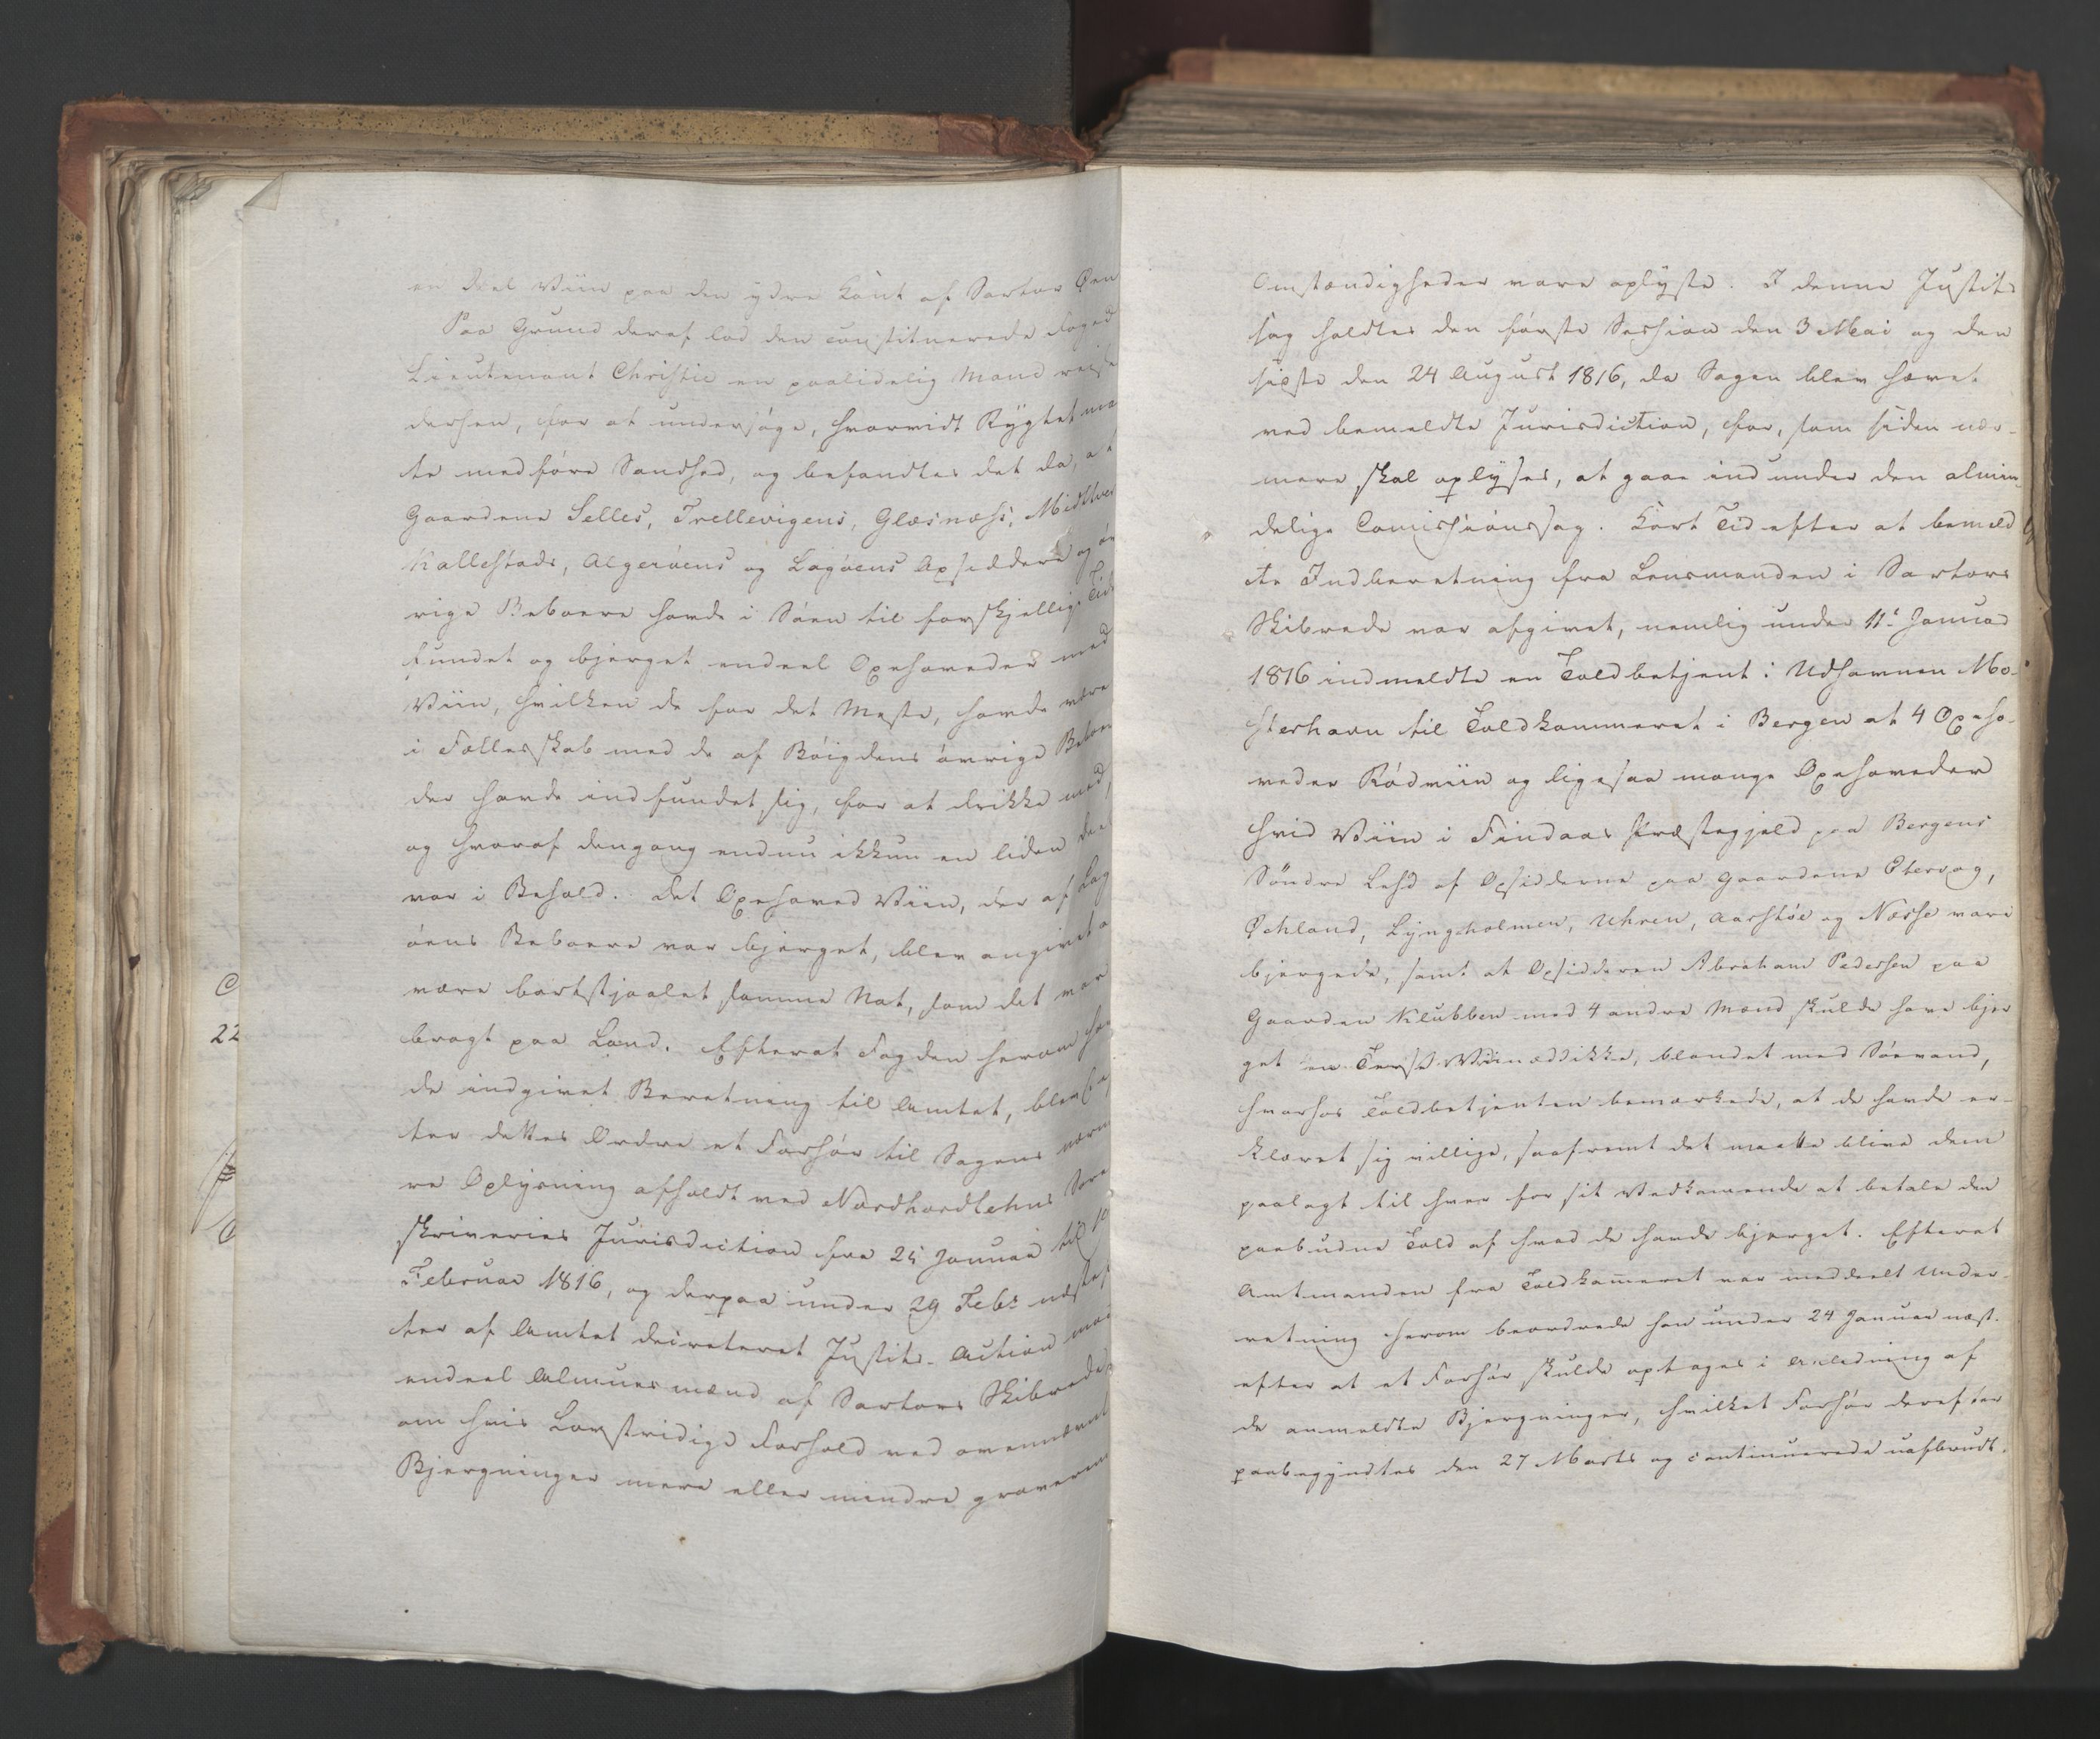 en deel Viin paa den ydre Kant af Sartor Øen
Paa Grund deraf lod den constituerede Foged
Lieutenant Christie en paalidelig Mand reise
dersen, for at undersøge, hvorvidt Rygtet maa
te medføre Sandhed, og befandtes det da, at
Gaardene Selles, Trellevigens, Glæsnæss,
Kallestads, Algeröens og Lagöens Opsiddere og öv
rige Beboere havde i Söen til forskjellig Tid
fundet og bjerget endeel Oxehoveder med
Viin, hvilken de for det Meste, havde
i Fællesskab med de af Böigdens övrige Beboer
der havde indfundet sig, for at drikke med,
og hvoraf dengang endnu ikkun en liden deel
var i Behold. Det Oxehoved Viin, der af Lag
öens Beboere var bjerget, blev angivet a
være bortstjaalet samme Nat, som det var
bragt paa Land. Efterat Fogden herom hav
de indgivet Beretning til Amtet, blev ef
ter dettes Ordre et Forhör til Sagens nærm
re Oplysning afholdt ved Nordhordlehns Sore
skriveries Jurisdiction fra 25 Januar til 10
Februar 1816, og derpaa under 29 Febr næstef
ter af Amtet decreteret Justits-Action mod
endeel Almuesmænd af Sartors Skibrede,
om hvis Lovstridige Forhold ved ovennævnt
Bjergninger mere eller mindre graveren
C
22
Omstændigheder vare oplyste. I denne Justits
sag holdtes den første Session den 3 Mai og den
sidste den 24 August 1816, da Sagen blev hævet
ved bemeldte Jurisdiction, for, som siden nær-
mere skal oplyses, at gaae ind under den almin
delige Comissionssag. Kort Tid efter at bemeld
te Indberetning fra Lensmanden i Sartors
Skibrede var afgivet, nemlig under 11te Januar
1816 indmeldte en Toldbetjent i Udhavnen Mo-
sterhavn til Toldkammeret i Bergen at 4 Oxeho-
veder Rödviin og ligesaa mange Oxehoveder
hvid Viin i Findaas Præstegjeld paa Bergens
Söndre Lehd af Opsidderne paa Gaardene Etervag,
Øchland, Lyngholmen, Uhren, Aarsköe og Næsse vare
bjergede, samt at Opsidderen Abraham Pedersen paa
Gaarden Klubben med 4 andre Mænd skulde have bjer
get en Terse Viinæddikke, blandet med Söevand,
hvorhos Toldbetjenten bemærkede, at de havde er-
klæret sig villige, saafremt det maatte blive dem
paalagt til hver for sit Vedkommende at betale den
paabudne Told af hvad de havde bjerget. Efterat
Amtmanden fra Toldkammeret var meddeelt Under-
retning herom beordrede han under 24 Januar næst-
efter at et Forhör skulde optages i Anledning af
de anmeldte Bjergninger, hvilket Forhör derefter
paabegyndtes den 27 Marts og continuerede uafbrudt.